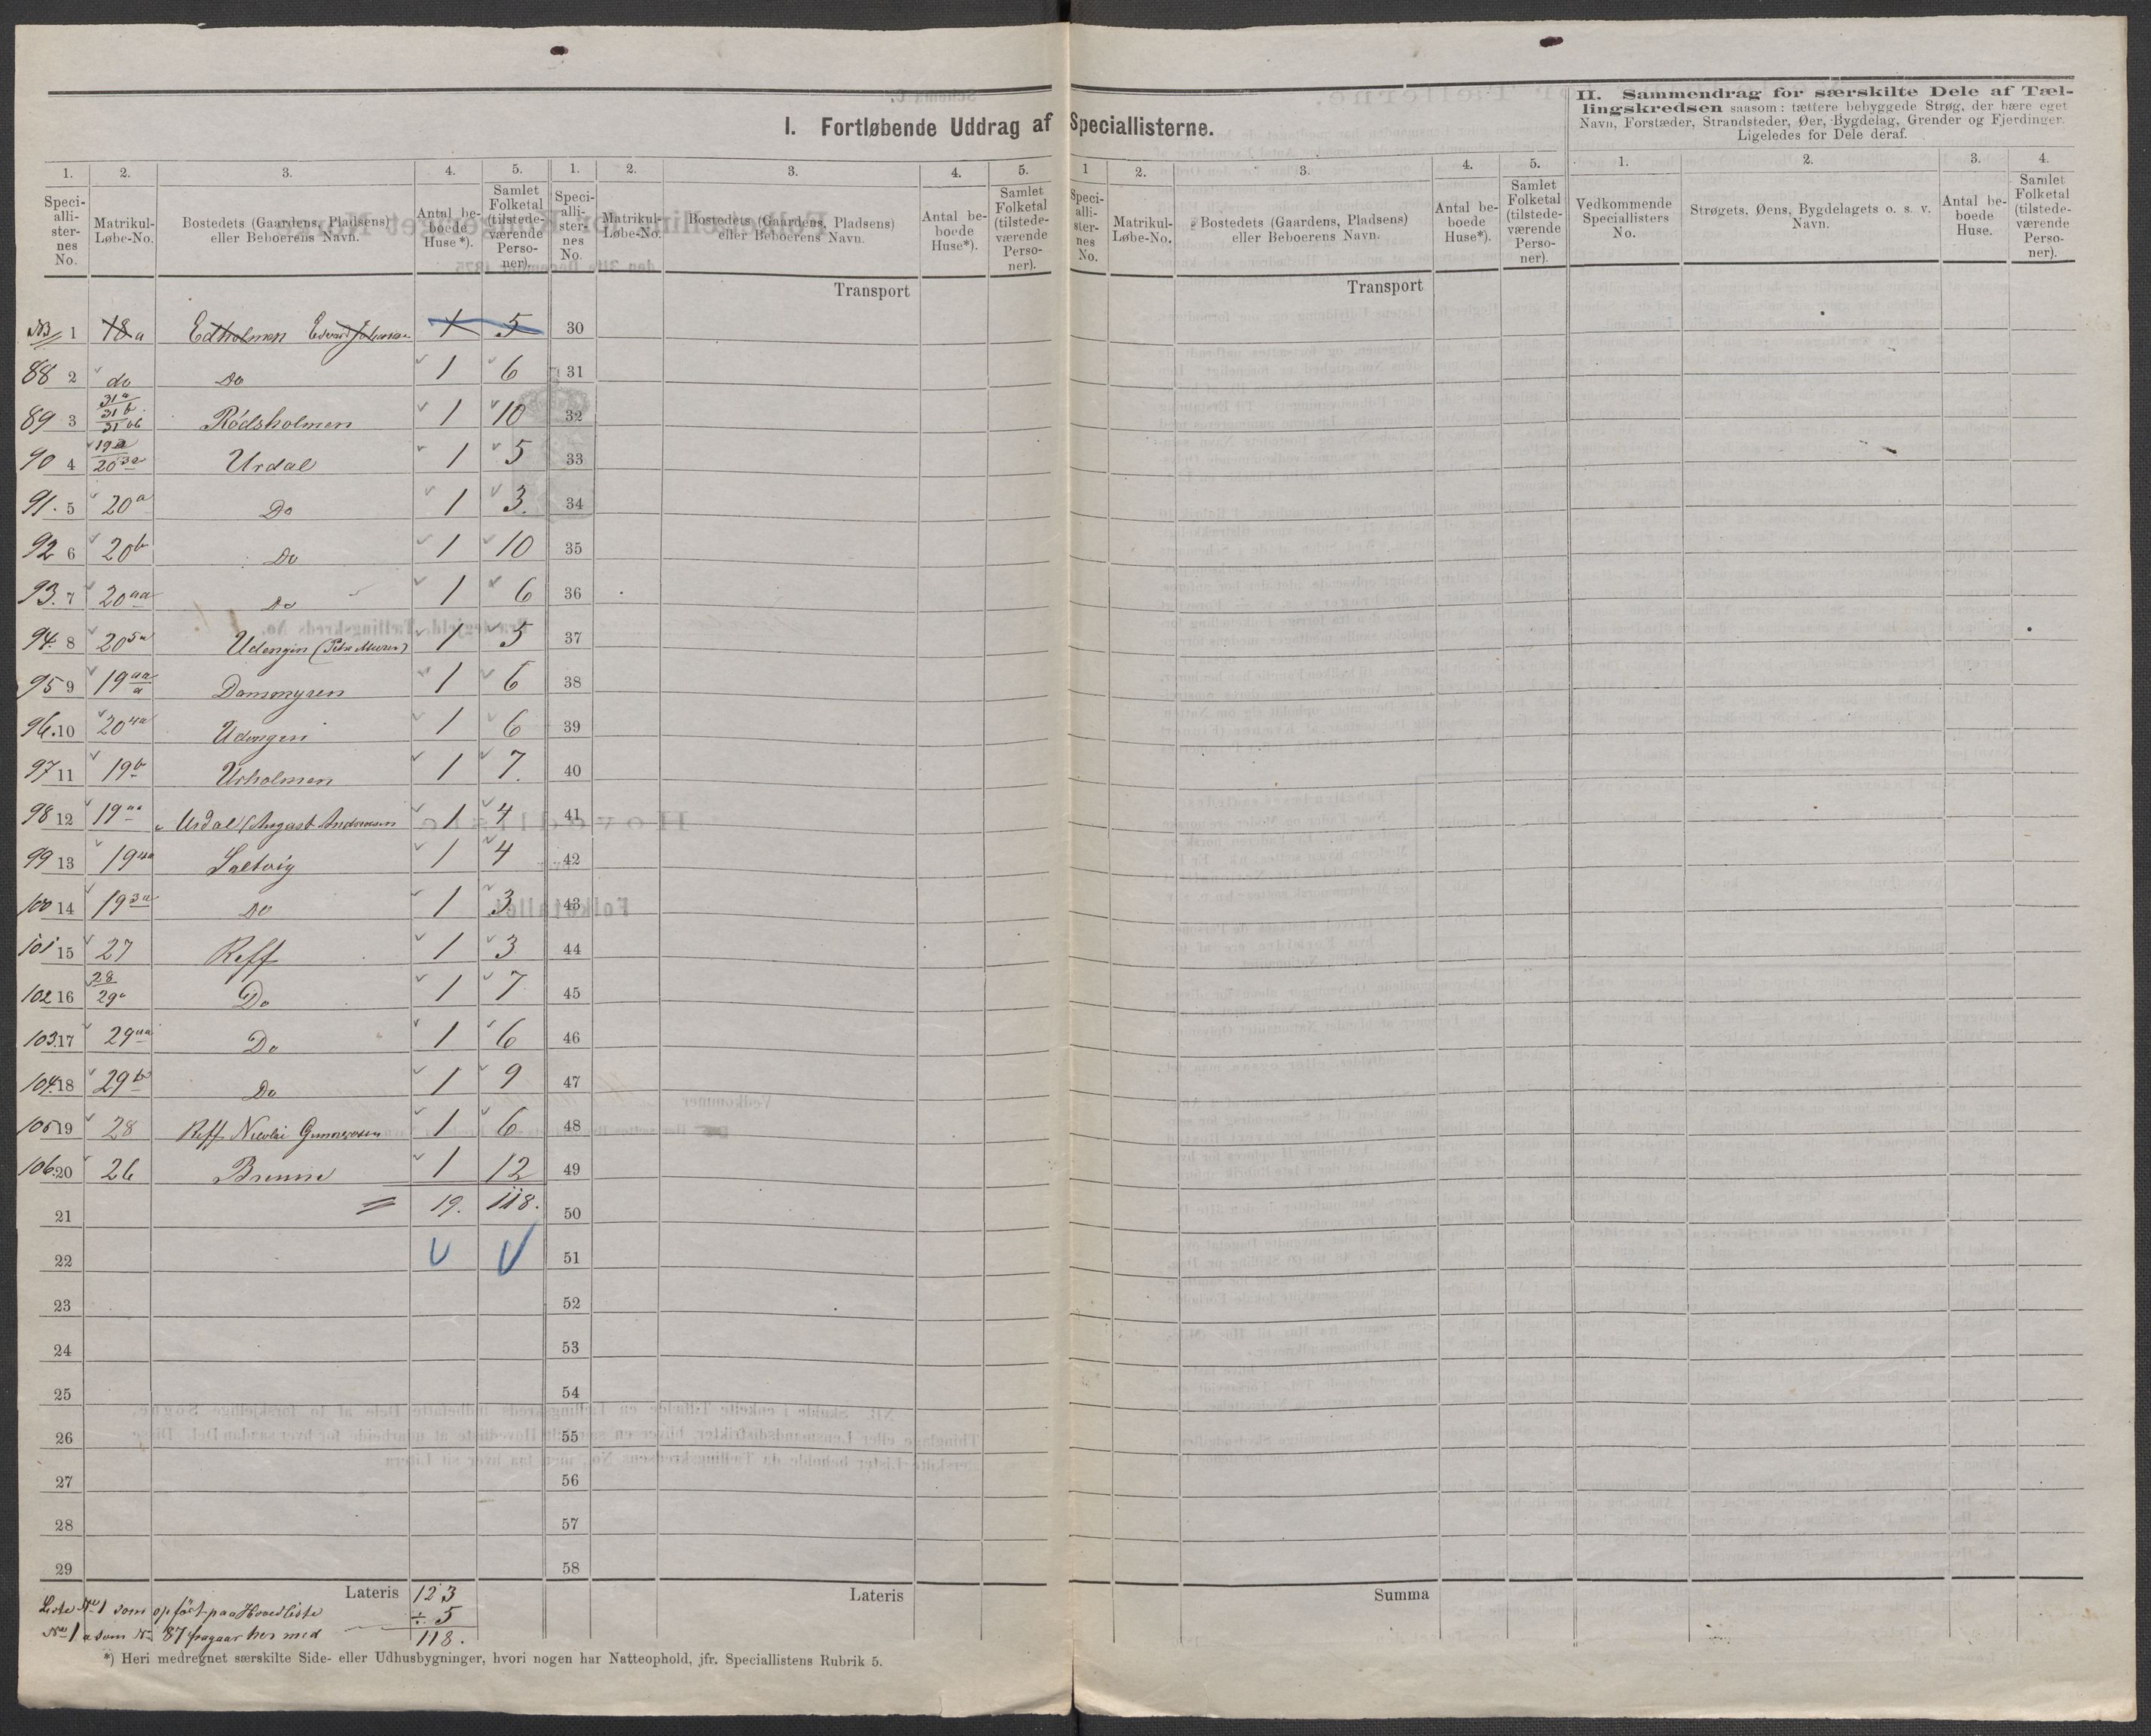 I. Fortløbende Uddrag af Speciallisterne.
II. Sammendrag for særskilte Dele af Tæl-
lingskredsen saasom: tættere bebyggede Strøg, der bære eget
Navn, Forstæder, Strandsteder, Øer, Bygdelag, Grender og Fjerdinger.
Ligeledes for Dele deraf.
1. 2. 3. 4. 5. 1. 2. 3. 4. 5. 1 2. 3. 4. 5. 1. 2. 3. 4.
Speci-alli-ster-nes No. Matrikul-Løbe-No. Bostedets (Gaardens, Pladsens) eller Beboerens Navn. Antal be-boede Huse*). Samlet Folketal (tilstede-værende Perso-ner).
Speci-alli-ster-nes No. Matrikul-Løbe-No. Bostedets (Gaardens, Pladsens) eller Beboerens Navn. Antal be-boede Huse*). Samlet Folketal (tilstede-værende Perso-ner).
Speci-alli-ster-nes No. Matrikul-Løbe-No. Bostedets (Gaardens, Pladsens) eller Beboerens Navn. Antal be-boede Huse*). Samlet Folketal (tilstede-værende Perso-ner).
Vedkommende Speciallisters No. Strøgets, Øens, Bygdelagets o. s. v. Navn. Antal be-boede Huse. Samlet Folketal (tilstede-værende Perso-ner).
Transport Transport
1 18a Edholmen Edvard Johansen 1 5 30
88 2 do Do 1 6 31
89 3 31a 31b 31bb Rödsholmen 1 10 32
90 4 19a 20 3a Urdal 1 5 33
91. 5 20a Do 1 3. 34
92 6 20b Do 1 10 35
93. 7 20aa Do 1 6 36
94. 8 20 5a Udengen 1 5 37
95 9 19 aa a Dammyren 1 6 38
96. 10 20 4a Udengen 1 6 39
97 11 19b Urholmen 1 7. 40
98 12 19aa Urdal (August Andersen 1 4 41
99 13 19 4a Saltvig 1 4 42
100 14 19 3a Do 1 3 43
101 15 27 Reff 1 3 44
102 16 28 29a Do 1 7 45
103. 17 29aa Do 1 6 46
104. 18 29b Do 1 9 47
105 19 28 Reff Nicolai Gunnersen 1 6 48
106. 20 26 Brenne 1 12 49
21 19. 118. 50
22 51
23 52
24 53
25 54
26 55
27 56
28 57
29 58
Lateris 123 Lateris Summa
Liste No 1 som opfört paa Hovedliste ÷ 5
No 1a som No 87 fragaar her med 118.
*) Heri medregnet særskilte Side- eller Udhusbygninger, hvori nogen har Natteophold, jfr. Speciallistens Rubrik 5.